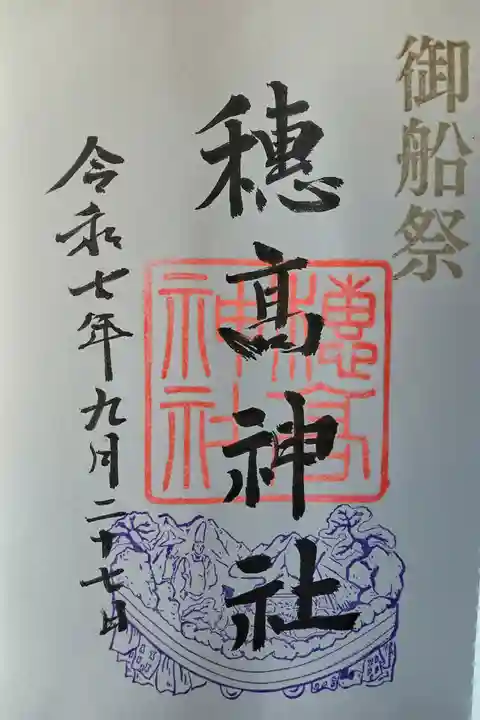 御船祭
穂髙神社
穂高神社
令和七年九月二十七日